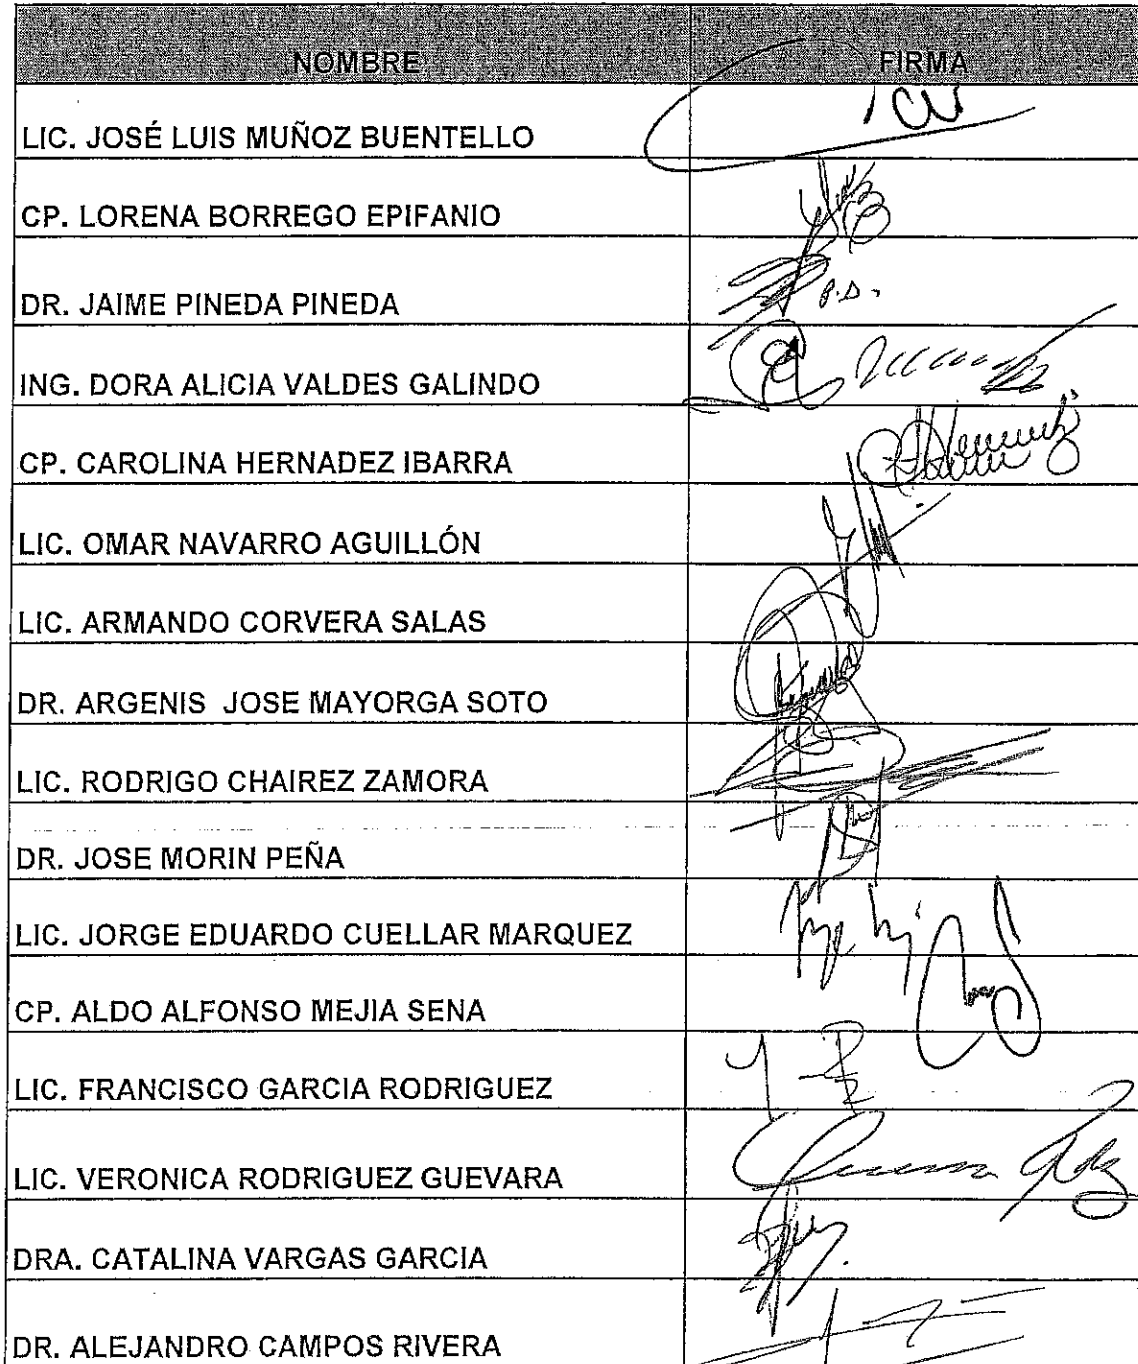 NOMBRE FIRMA
LIC. JOSÉ LUIS MUÑOZ BUENTELLO
CP. LORENA BORREGO EPIFANIO
DR. JAIME PINEDA PINEDA P.D.
ING. DORA ALICIA VALDES GALINDO
CP. CAROLINA HERNADEZ IBARRA
LIC. OMAR NAVARRO AGUILLÓN
LIC. ARMANDO CORVERA SALAS
DR. ARGENIS JOSE MAYORGA SOTO
LIC. RODRIGO CHAIREZ ZAMORA
DR. JOSE MORIN PEÑA
LIC. JORGE EDUARDO CUELLAR MARQUEZ
CP. ALDO ALFONSO MEJIA SENA
LIC. FRANCISCO GARCIA RODRIGUEZ
LIC. VERONICA RODRIGUEZ GUEVARA
DRA. CATALINA VARGAS GARCIA
DR. ALEJANDRO CAMPOS RIVERA